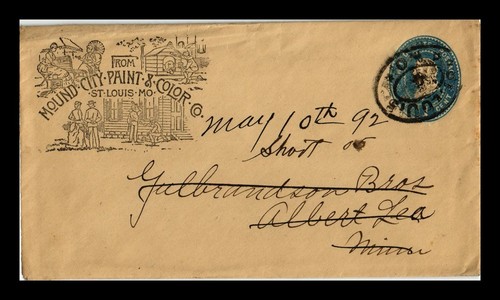 FROM
MOUND CITY PAINT & COLOR CO.
ST. LOUIS. MO.
May 10th 92
Short
Gulbrandson Bros
Albert Lea
Minn